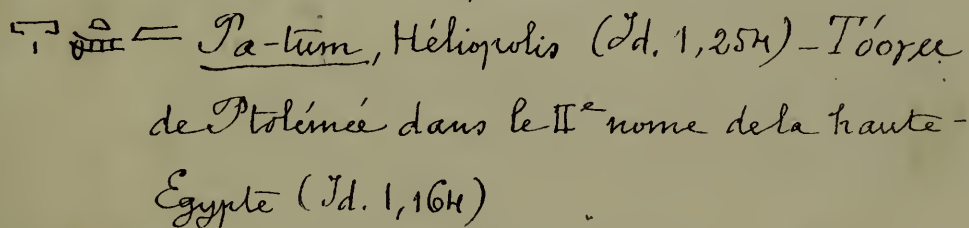 = Pa-tum, Héliopolis (Id. 1,254) - Tóoree
de Ptolémée dans le IIᵉ nome de la haute-
Egypte (Id. 1,164)